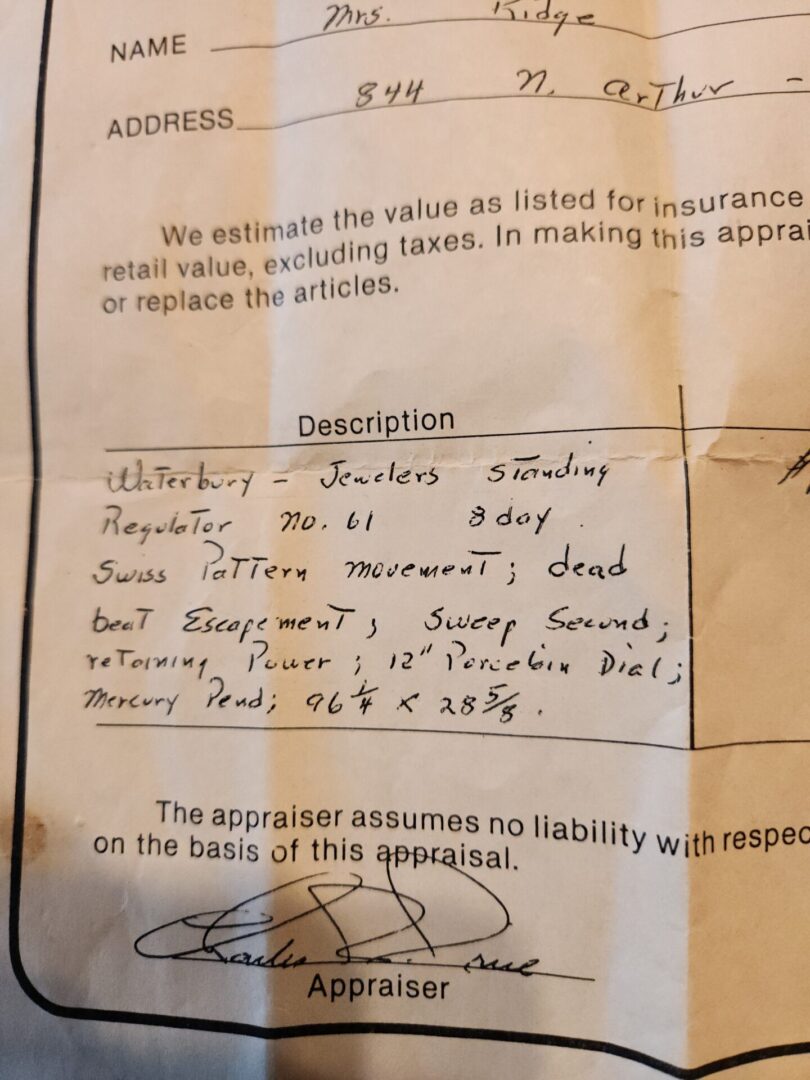 NAME Mrs. Ridge
ADDRESS 844 N. Arthur -
We estimate the value as listed for insurance
retail value, excluding taxes. In making this apprai
or replace the articles.
Description
Waterbury - Jewelers Standing $
Regulator no. 61 8 day.
Swiss Pattern movement; dead
beat Escapement; Sweep Second;
retaining Power; 12" Porcelain Dial;
Mercury Pend; 96 1/4 x 28 5/8.
The appraiser assumes no liability with respec
on the basis of this appraisal.
Charles
Appraiser